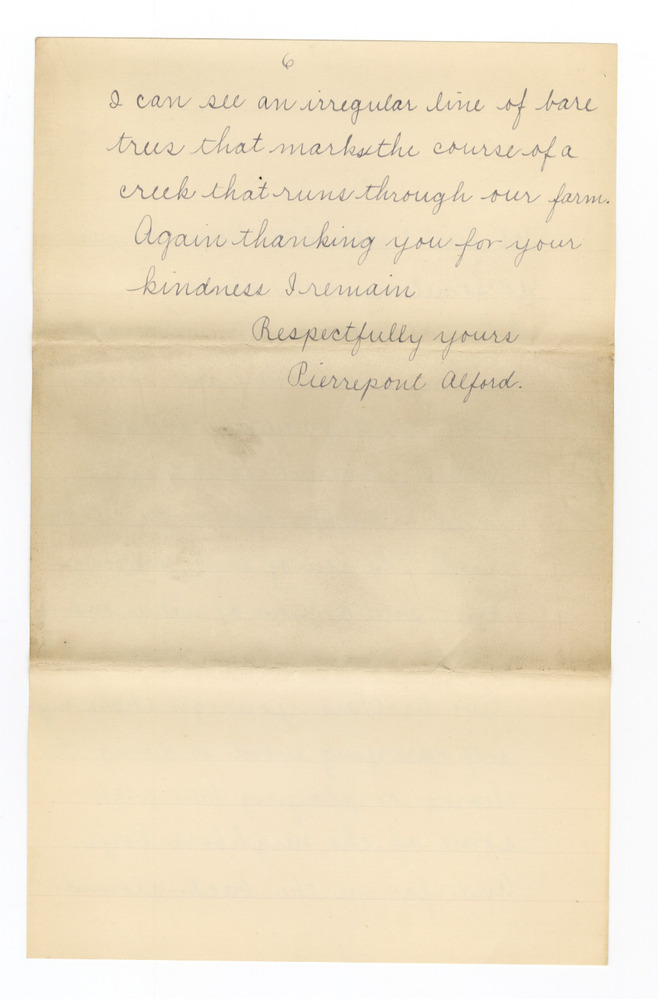 6
I can see an irregular line of bare
trees that marks the course of a
creek that runs through our farm.
Again thanking you for your
kindness I remain
Respectfully yours
Pierrepont Alford.